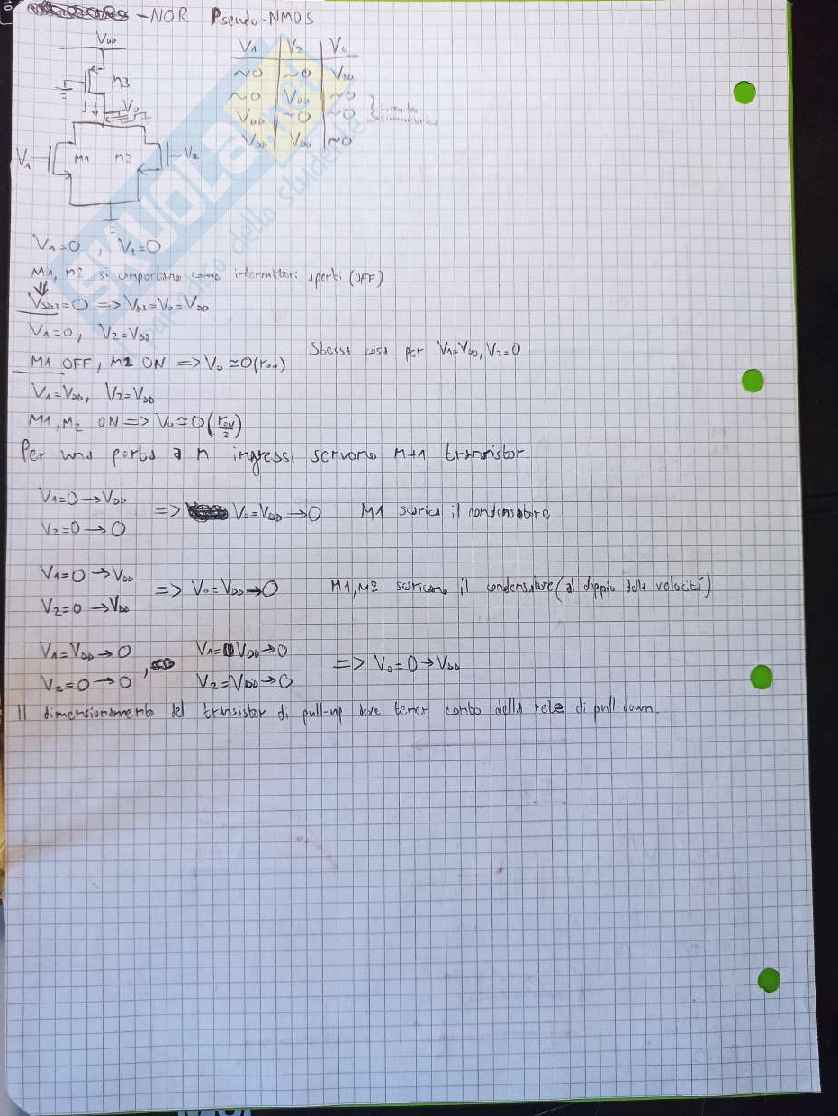 -NOR Pseudo-NMOS
VDD
M3
V0
V1 M1 M2 V2
V1 V2 V0
~0 ~0 VDD
~0 VDD ~0
VDD ~0 ~0
VDD VDD ~0
V1=0, V2=0
M1, M2 si comportano come interruttori aperti (OFF)
=0 => =V0=VDD
V1=0, V2=VDD
M1 OFF, M2 ON => V0≃0(ron) Stessa cosa per V1=VDD, V2=0
V1=VDD, V2=VDD
M1, M2 ON => V0≃0(ron/2)
Per una porta a n ingressi servono n+1 transistor
V1=0→VDD
V2=0→0 => V0=VDD→0 M1 scarica il condensatore
V1=0→VDD
V2=0→VDD => V0=VDD→0 M1, M2 scaricano il condensatore (al doppio della velocità)
V1=VDD→0 , V1=VDD→0
V2=0→0 V2=VDD→0 => V0=0→VDD
Il dimensionamento del transistor di pull-up deve tener conto della rete di pull down.
SKUOLA.net
paradiso dello studente